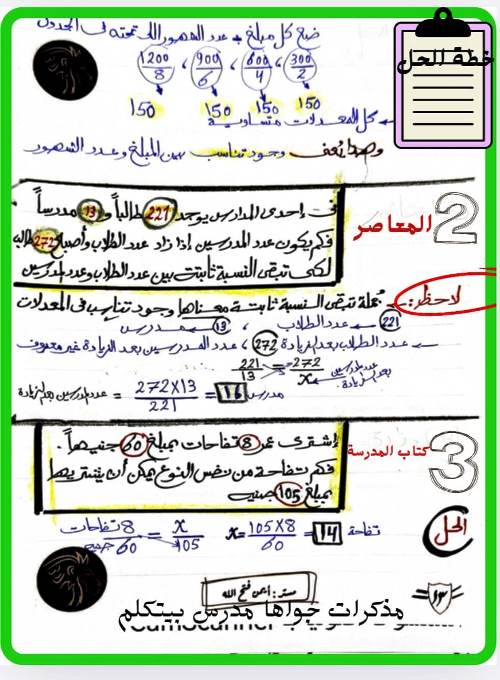 ضع كل مبلغ ÷ عدد الشهور اللى تحته فى الجدول
خطة الحل
300/2 ، 600/4 ، 900/6 ، 1200/8
150 150 150 150
كل المعدلات متساوية
وهذا يُعف وجود تناسب بين المبلغ وعدد الشهور
2 المعاصر
فى إحدى المدارس يوجد 221 طالباً و 13 مدرساً
فكم يكون عدد المدرسين إذا زاد عدد الطلاب وأصبح 272 طالب
لكى تبقى النسبة ثابتة بين عدد الطلاب وعدد المدرسين
لاحظ: جملة تبقى النسبة ثابتة معناها وجود تناسب فى المعدلات
221 عدد الطلاب ، 13 مدرس
عدد الطلاب بعد الزيادة 272 ، عدد المدرسين بعد الزيادة غير معروف
221/13 = 272/x عدد المدرسين بعد الزيادة
عدد المدرسين بعد الزيادة = 272×13/221 = 16 مدرس
3 كتاب المدرسة
إشترى عمر 8 تفاحات بمبلغ 60 جنيهاً.
فكم تفاحة من نفس النوع يمكن أن يشتريها
بمبلغ 105 جنيه
الحل
8 تفاحات/60 جنيه = x/105 x = 105×8/60 = 14 تفاحة
مستر: أيمن فتح الله
١٣
مذكرات جواها مدرس بيتكلم
CamScanner